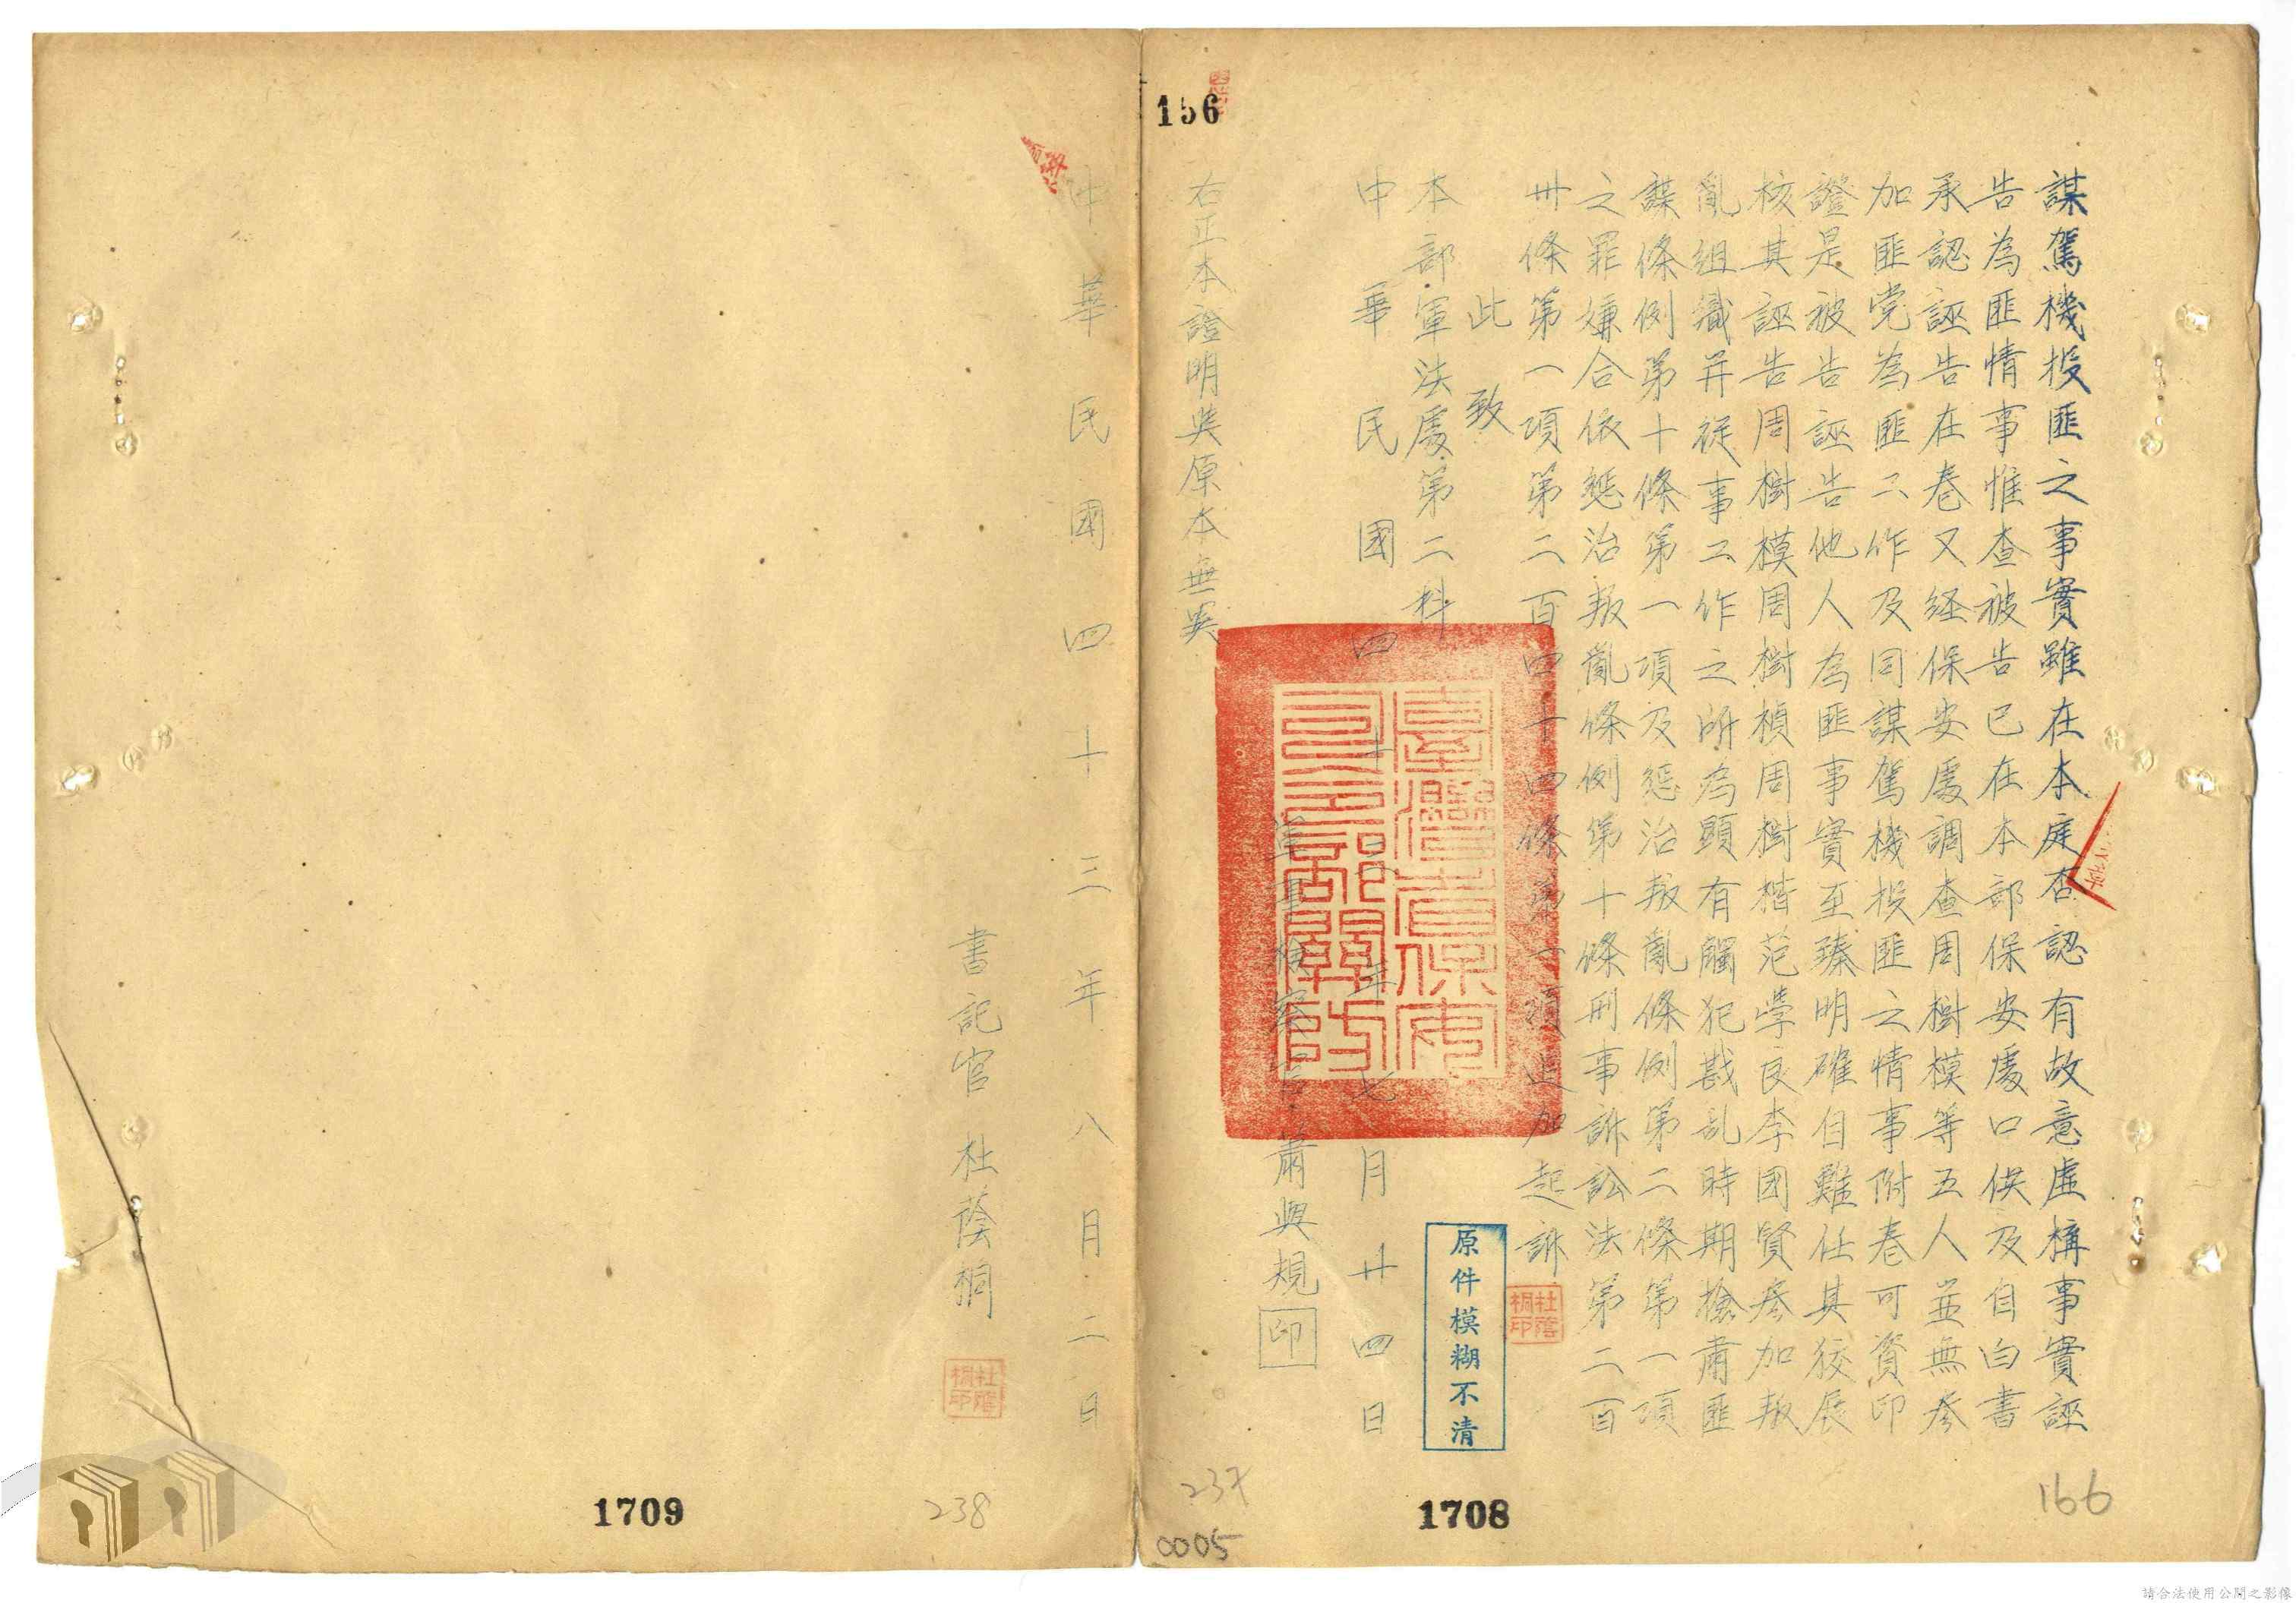 謀駕機投匪之事實雖在本庭否認有故意虛構事實誣
告為匪情事惟查被告已在本部保安處口供及自白書
承認誣告在卷又経保安處調查周樹模等五人並無參
加匪党為匪工作及同謀駕機投匪之情事附卷可資印
證是被告誣告他人為匪事實至臻明確自難任其狡展
核其誣告周樹模周樹楨周樹楷范學良李團賢參加叛
亂組織并從事工作之所為顯有觸犯戡乱時期檢肅匪
諜條例第十條第一項及懲治叛亂條例第二條第一項
之罪嫌合依懲治叛亂條例第十條刑事訴訟法第二百
卅條第一項第二百四十四條第一項追加起訴
此致
本部軍法處第二科
中華民國四十三年七月廿四日
軍事檢察官蕭與規
印
右正本證明與原本無異
中華民國四十三年八月二日
書記官 杜蔭桐
臺灣省保安司令部關防
原件模糊不清
杜蔭桐印
杜蔭桐印
156
166
237
0005
1708
238
1709
請合法使用公開之影像